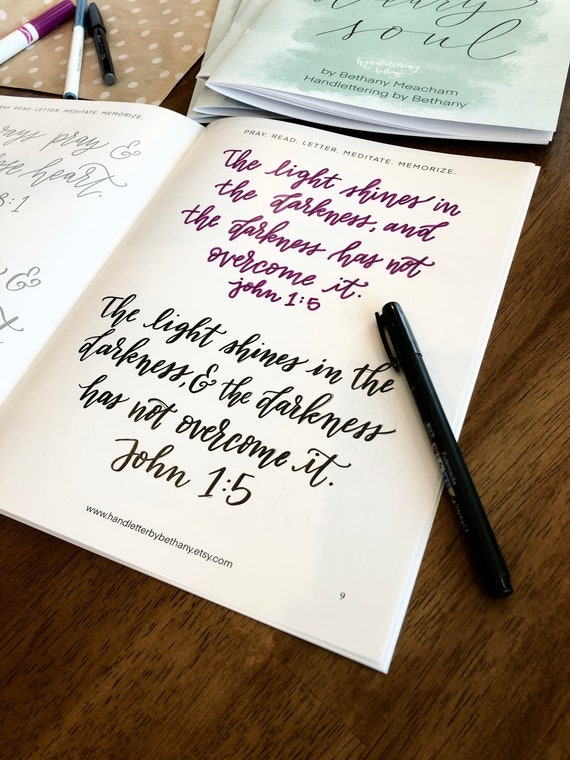 soul
handlettering
by bethany
by Bethany Meacham
Handlettering by Bethany
pray &
heart.
:1
&
PRAY. READ. LETTER. MEDITATE. MEMORIZE.
PRAY. READ. LETTER. MEDITATE. MEMORIZE.
The light shines in
the darkness, and
the darkness has not
overcome it.
john 1:5
The light shines in the
darkness, & the darkness
has not overcome it.
John 1:5
www.handletterbybethany.etsy.com
9